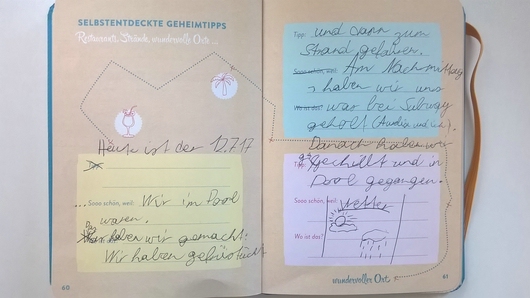 SELBSTENTDECKTE GEHEIMTIPPS
Restaurants, Strände, wundervolle Orte ...
Häute ist der 12.7.17
Tipp:
... Sooo schön, weil: Wir im Pool
waren.
Wo ist das? haben wir gemacht:
Wir haben gefrüstückt
60
Tipp: und dann zum
Strand gefahren.
Sooo schön, weil: Am Nachmittag
haben wir uns
Wo ist das? was bei Subway
geholt (Aurelia und ich).
Danach haben wir
gechillt und in
Pool gegangen.
Sooo schön, weil: Wetter
Wo ist das?
wundervoller Ort
61